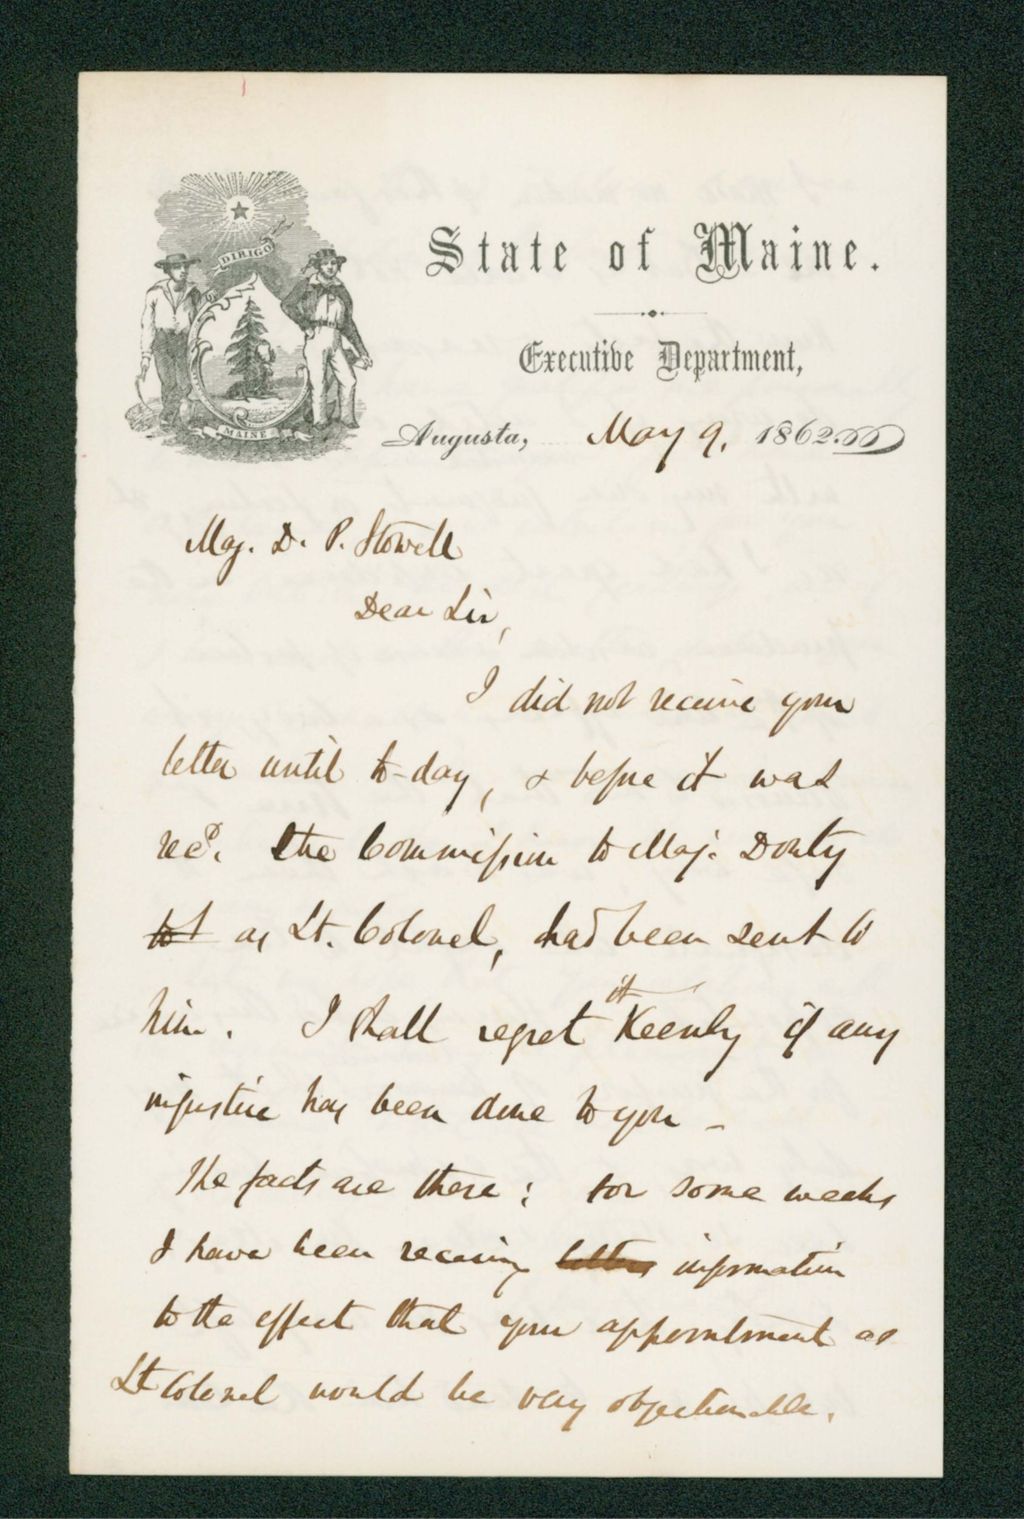 DIRIGO
MAINE
State of Maine.
Executive Department,
Augusta, May 9, 1862
Maj. D. P. Stowell
Dear Sir,
I did not receive your
letter until to-day, & before it was
recd. the Commission to Maj. Douty
to as Lt. Colonel, had been sent to
him. I shall regret it Keenly if any
injustice has been done to you -
The facts are these: for some weeks
I have been receiving letters information
to the effect that your appointment as
Lt Colonel would be very objectionable.